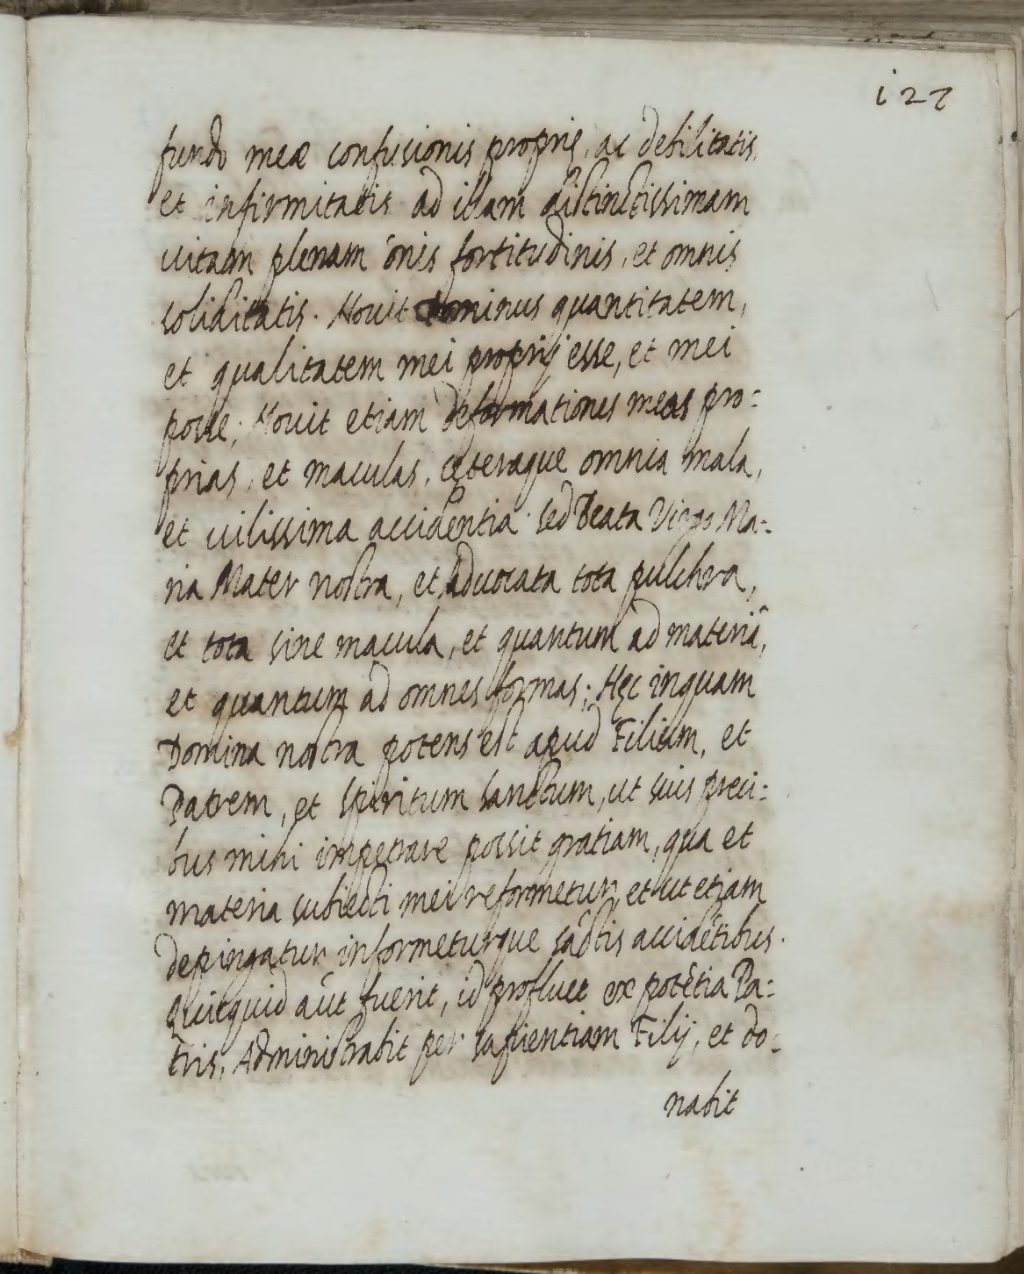 127
fundo meæ confusionis proprię, ac debilitatis,
et infirmitatis ad illam distinctissimam
uitam plenam õnis fortitudinis, et omnis
soliditatis. Nouit Dominus quantitatem,
et qualitatem mei proprij esse, et mei
posse; Nouit etiam deformationes meas pro-
prias, et maculas, cęteraque omnia mala,
et uilissima accidentia. Sed Beata Virgo Ma-
ria Mater nostra, et aduocata tota pulchra,
et tota sine macula, et quantum ad materiã,
et quantum ad omnes formas; Hęc inquam
Domina nostra potens est apud Filium, et
Patrem, et Spiritum Sanctum, ut suis preci-
bus mihi impetrare possit gratiam, qua et
materia subiecti mei reformetur, et ut etiam
depingatur informeturque sãctis accidẽtibus.
Quicquid aũt fuerit, id profluet ex potẽtia Pa-
tris, Administrabit per sapientiam Filij, et do-
nabit